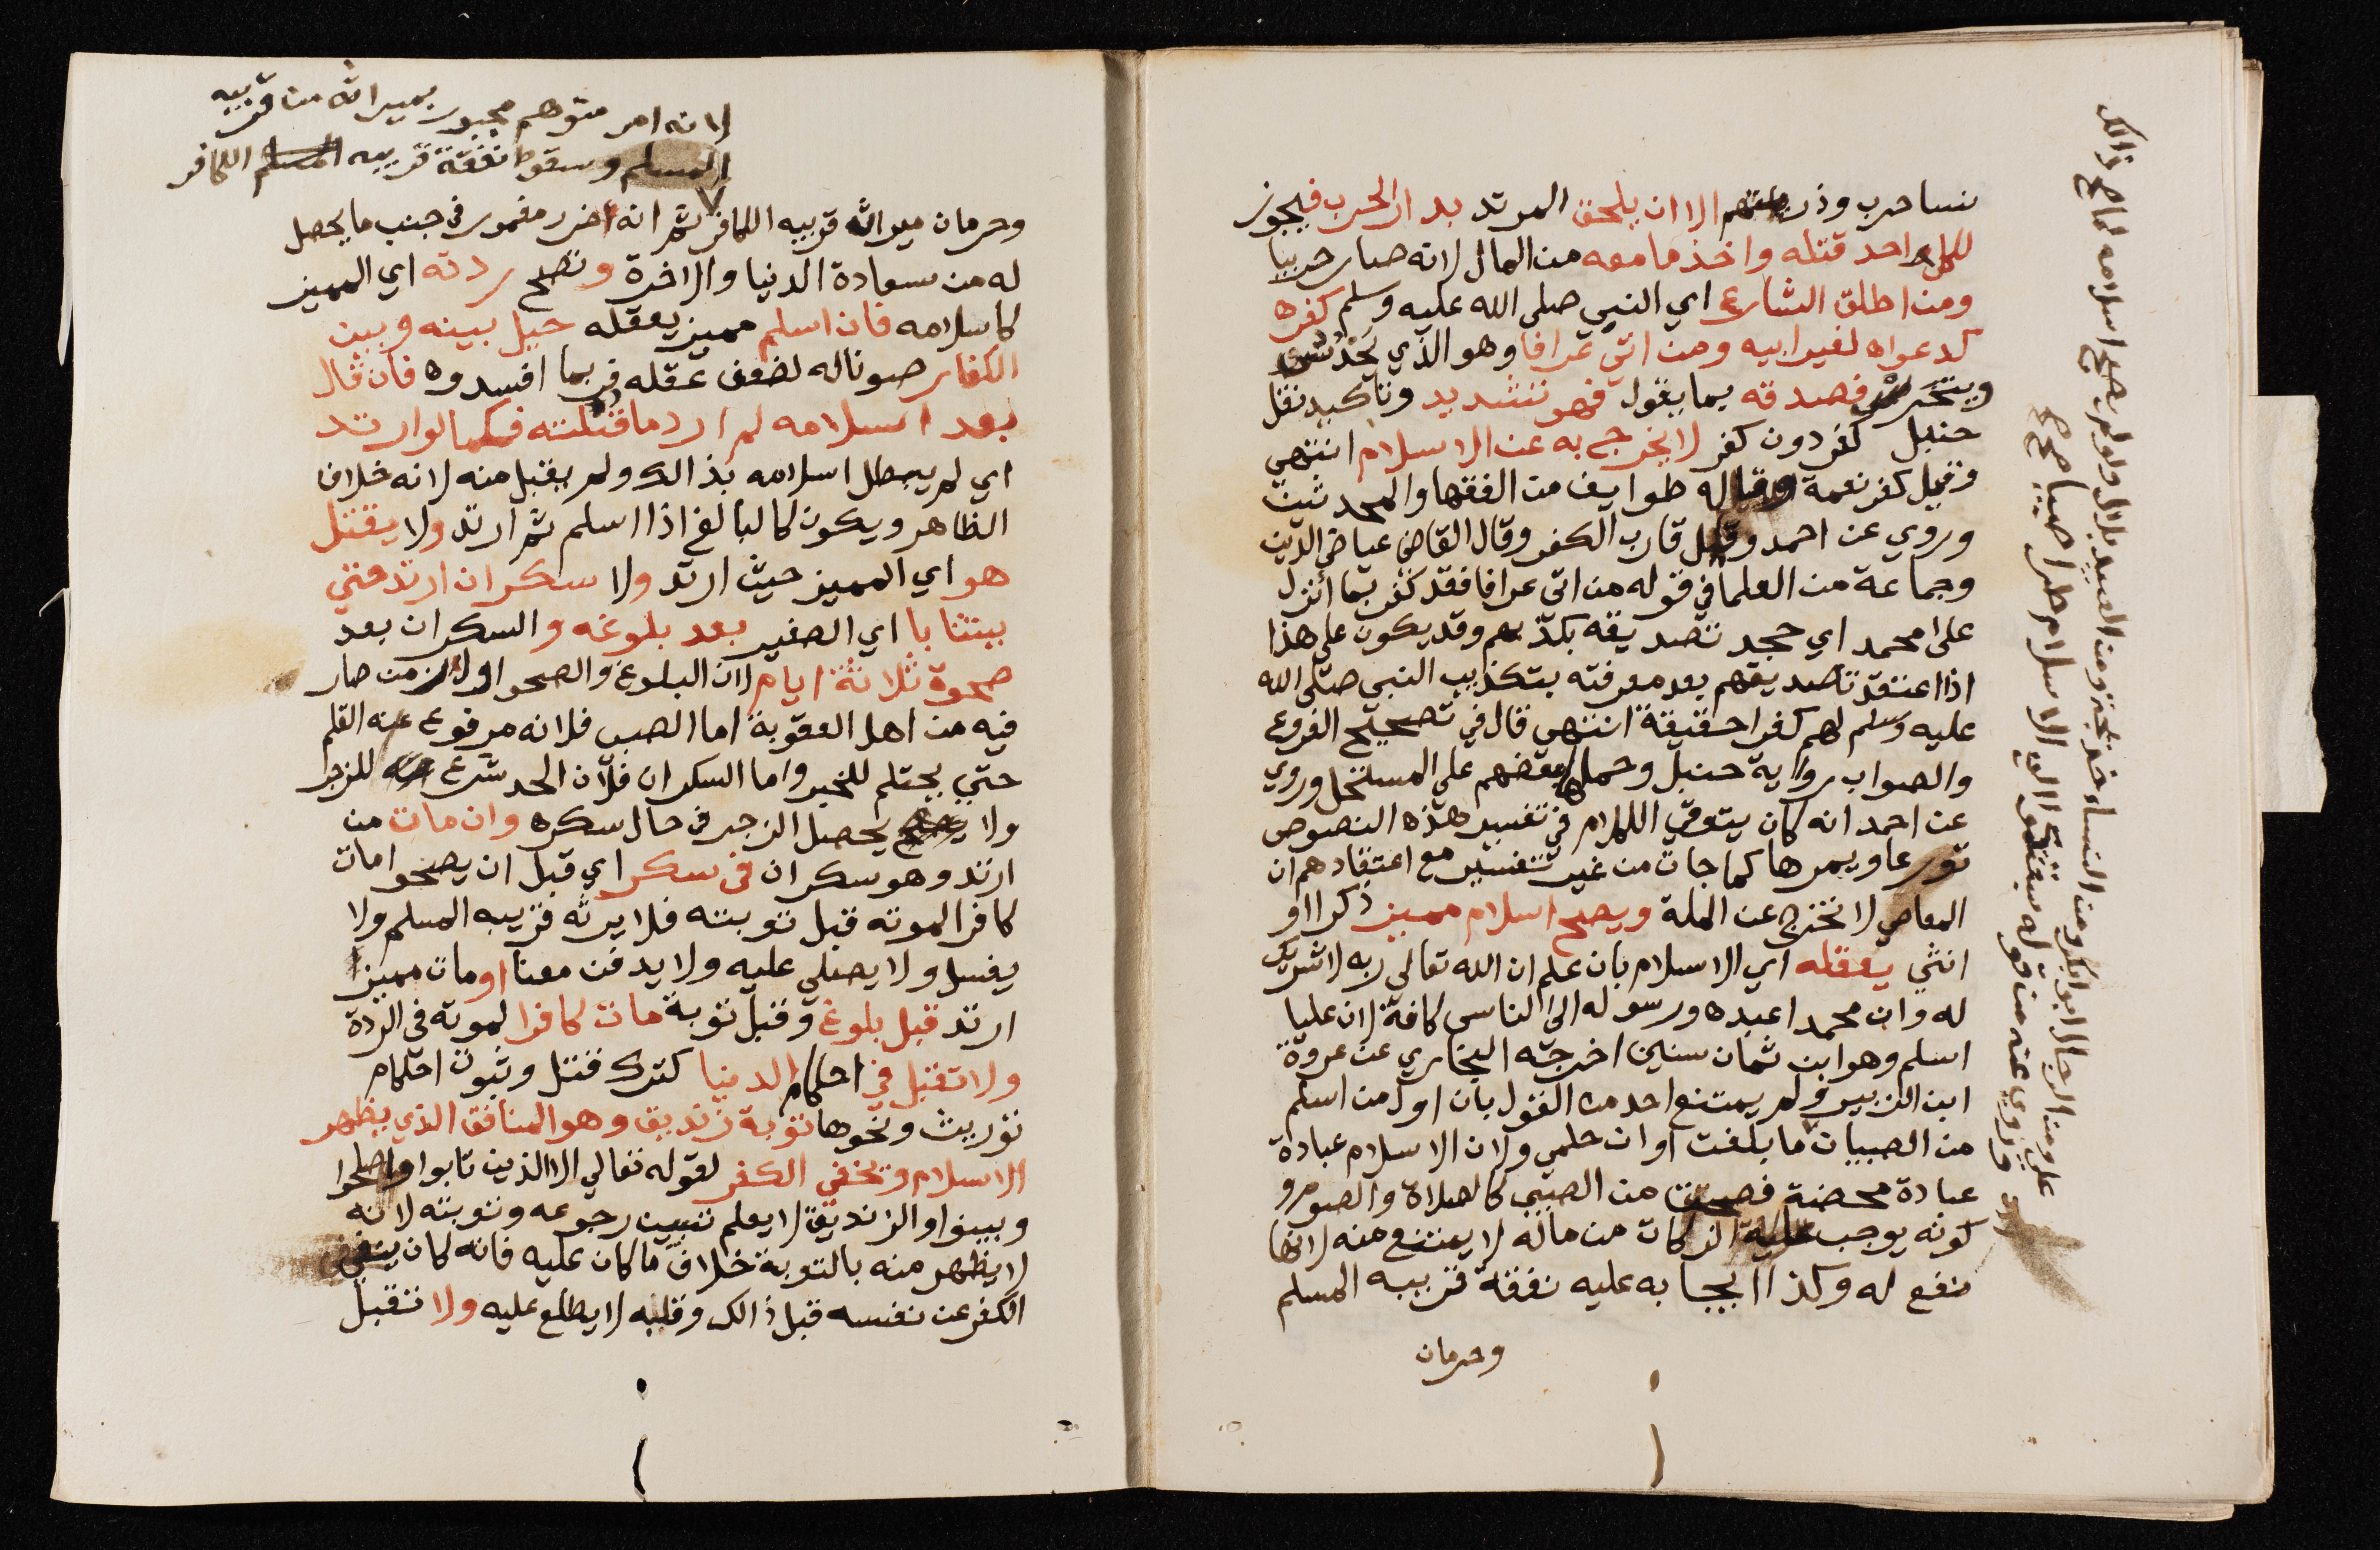 نسا حرب وذريتهم الا ان يلحق المرتد بدار الحرب فيجوز
لكل احد قتله واخذ ما معه من المال لانه صار حربيا
ومن اطلق الشارع اي النبي صلى الله عليه وسلم كفره
كدعواه لغير ابيه ومن اتى عرافا وهو الذي يحدس
ويتخرص فصدقه بما يقول فهو تشديد وتاكيد نقل
حنبل كفر دون كفر لا يخرج به عن الاسلام انتهى
وقيل كفر نعمة وقاله طوايف من الفقها والمحدثين
وروي عن احمد وقيل قارب الكفر وقال القاضي عياض الدين
وجماعة من العلما في قوله من اتى عرافا فقد كفر بما انزل
على محمد اي جحد تصديقه بكذبهم وقد يكون على هذا
اذا اعتقد تصديقهم بعد معرفته بتكذيب النبي صلى الله
عليه وسلم لهم كفرا حقيقة انتهى قال في تصحيح الفروع
والصواب رواية حنبل وحملها بعضهم على المستحل وروي
عن احمد انه كان يتوقى الكلام في تفسير هذه النصوص
تورعا ويمرها كما جات من غير تفسير مع اعتقادهم ان
المعاصي لا تخرج عن الملة ويصح اسلام مميز ذكرا او
انثى يعقله اي الاسلام بان علم ان الله تعالى ربه لا شريك
له وان محمدا عبده ورسوله الى الناس كافة لان عليا
اسلم وهو ابن ثمان سنين اخرجه البخاري عن عروة
ابن الزبير ولم يمتنع احد من القول بان اول من اسلم
من الصبيان ما بلغت اوان حلمي ولان الاسلام عبادة
عبادة محضة فصحت من الصبي كالصلاة والصوم و
كونه يوجب عليه الزكاة من ماله لا يمتنع منه لانها
نفع له وكذا ايجابه عليه نفقة قريبه المسلم
وحرمان
علي ومن الرجال ابو ابكر ومن النساء خديجة ومن العبيد بلال ولو لم يصح اسلامه لما صح ذالك
وروي عنه من قوله سبقتكموا الى الاسلام طرا صبيا صح
لانه امر متوهم مجبور بميراثه من قريبه
المسلم وسقوط نفقة قريبه المسلم الكافر
وحرمان ميراثه قريبه الكافر ثم انه ضرر مغمور في جنب ما يحصل
له من سعادة الدنيا والاخرة وتصح ردته اي المميز
كاسلامه فان اسلم مميز يعقله حيل بينه وبين
الكفار صونا له لضعف عقله فربما افسدوه فان قال
بعد اسلامه لم ارد ما قلته فكما لو ارتد
اي لم يبطل اسلامه بذالك ولم يقبل منه لانه خلاف
الظاهر ويكون كالبالغ اذا اسلم ثم ارتد ولا يقتل
هو اي المميز حيث ارتد ولا سكران ارتد حتى
يستتابا اي الصغير بعد بلوغه والسكران بعد
صحوة ثلاثة ايام لان البلوغ والصحو اول زمن صار
فيه من اهل العقوبة اما الصبي فلانه مرفوع عنه القلم
حتى يحتلم للخبر واما السكران فلان الحد شرع للزجر
ولا يحصل الزجر في حال سكره وان مات من
ارتد وهو سكران في سكر اي قبل ان يصحوا مات
كافرا لموته قبل توبته فلا يرثه قريبه المسلم ولا
يغسل ولا يصلى عليه ولا يدفن معنا او مات مميز
ارتد قبل بلوغ وقبل توبة مات كافرا لموته في الردة
ولا تقبل في احكام الدنيا كترك قتل وثبوت احكام
توريث ونحوها توبة زنديق وهو المنافق الذي يظهر
الاسلام ويخفي الكفر لقوله تعالى الا الذين تابوا واصلحوا
وبينوا والزنديق لا يعلم تبيين رجوعه وتوبته لانه
لا يظهر منه بالتوبة خلاف ما كان عليه فانه كان ينفي
الكفر عن نفسه قبل ذالك وقلبه لا يطلع عليه ولا تقبل